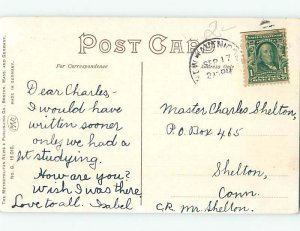 POST CARD
For Correspondence
Address Only
THE METROPOLITAN NEWS & PUBLISHING CO., BOSTON, MASS. AND GERMANY.
No. G. 15086.
MADE IN GERMANY.
SEP 17
Dear Charles -
I would have
written sooner
only we had a
lot studying.
How are you?
Wish I was there
Love to all. Isabel
Master Charles Shelton,
P.O. Box 465
Shelton,
Conn.
C.R. Mr. Shelton.